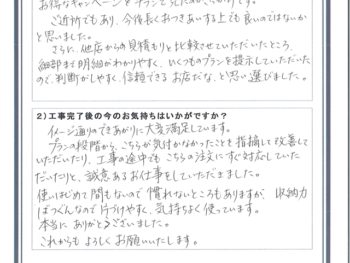 お得なキャンペーンをチラシで見たからです。
ご近所でもあり、今後長くおつきあいする上でも良いのではないか
と思いました。
さらに、他店からの見積もりと比較させていただいたところ、
細部まで明細がわかりやすく、いくつものプランを提示していただいた
ので、判断がしやすく、信頼できるお店だな、と思い選びました。
2)工事完了後の今のお気持ちはいかがですか?
イメージ通りのできあがりに大変満足しています。
プランの段階から、こちらが気付かなかったことを指摘して改善して
いただいたり、工事の途中でもこちらの注文にすぐ対応していた
だいたりと、誠意あるお仕事をしていただきました。
使いはじめて間もないので慣れないところもありますが、収納力
ばつぐんなので片づけやすく、気持ちよく使っています。
本当にありがとうございました。
これからもよろしくお願いいたします。